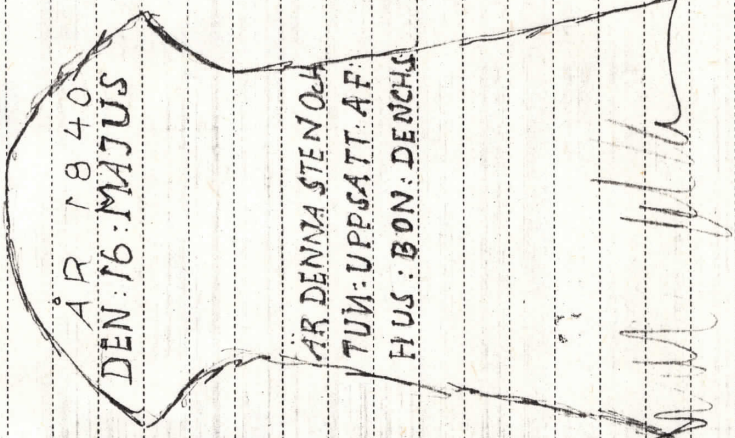 ÅR 1840
DEN: 16: MAJUS
ÄR DENNA STEN OCH
TUN: UPPSATT: AF:
HUS: BON: DENCHS